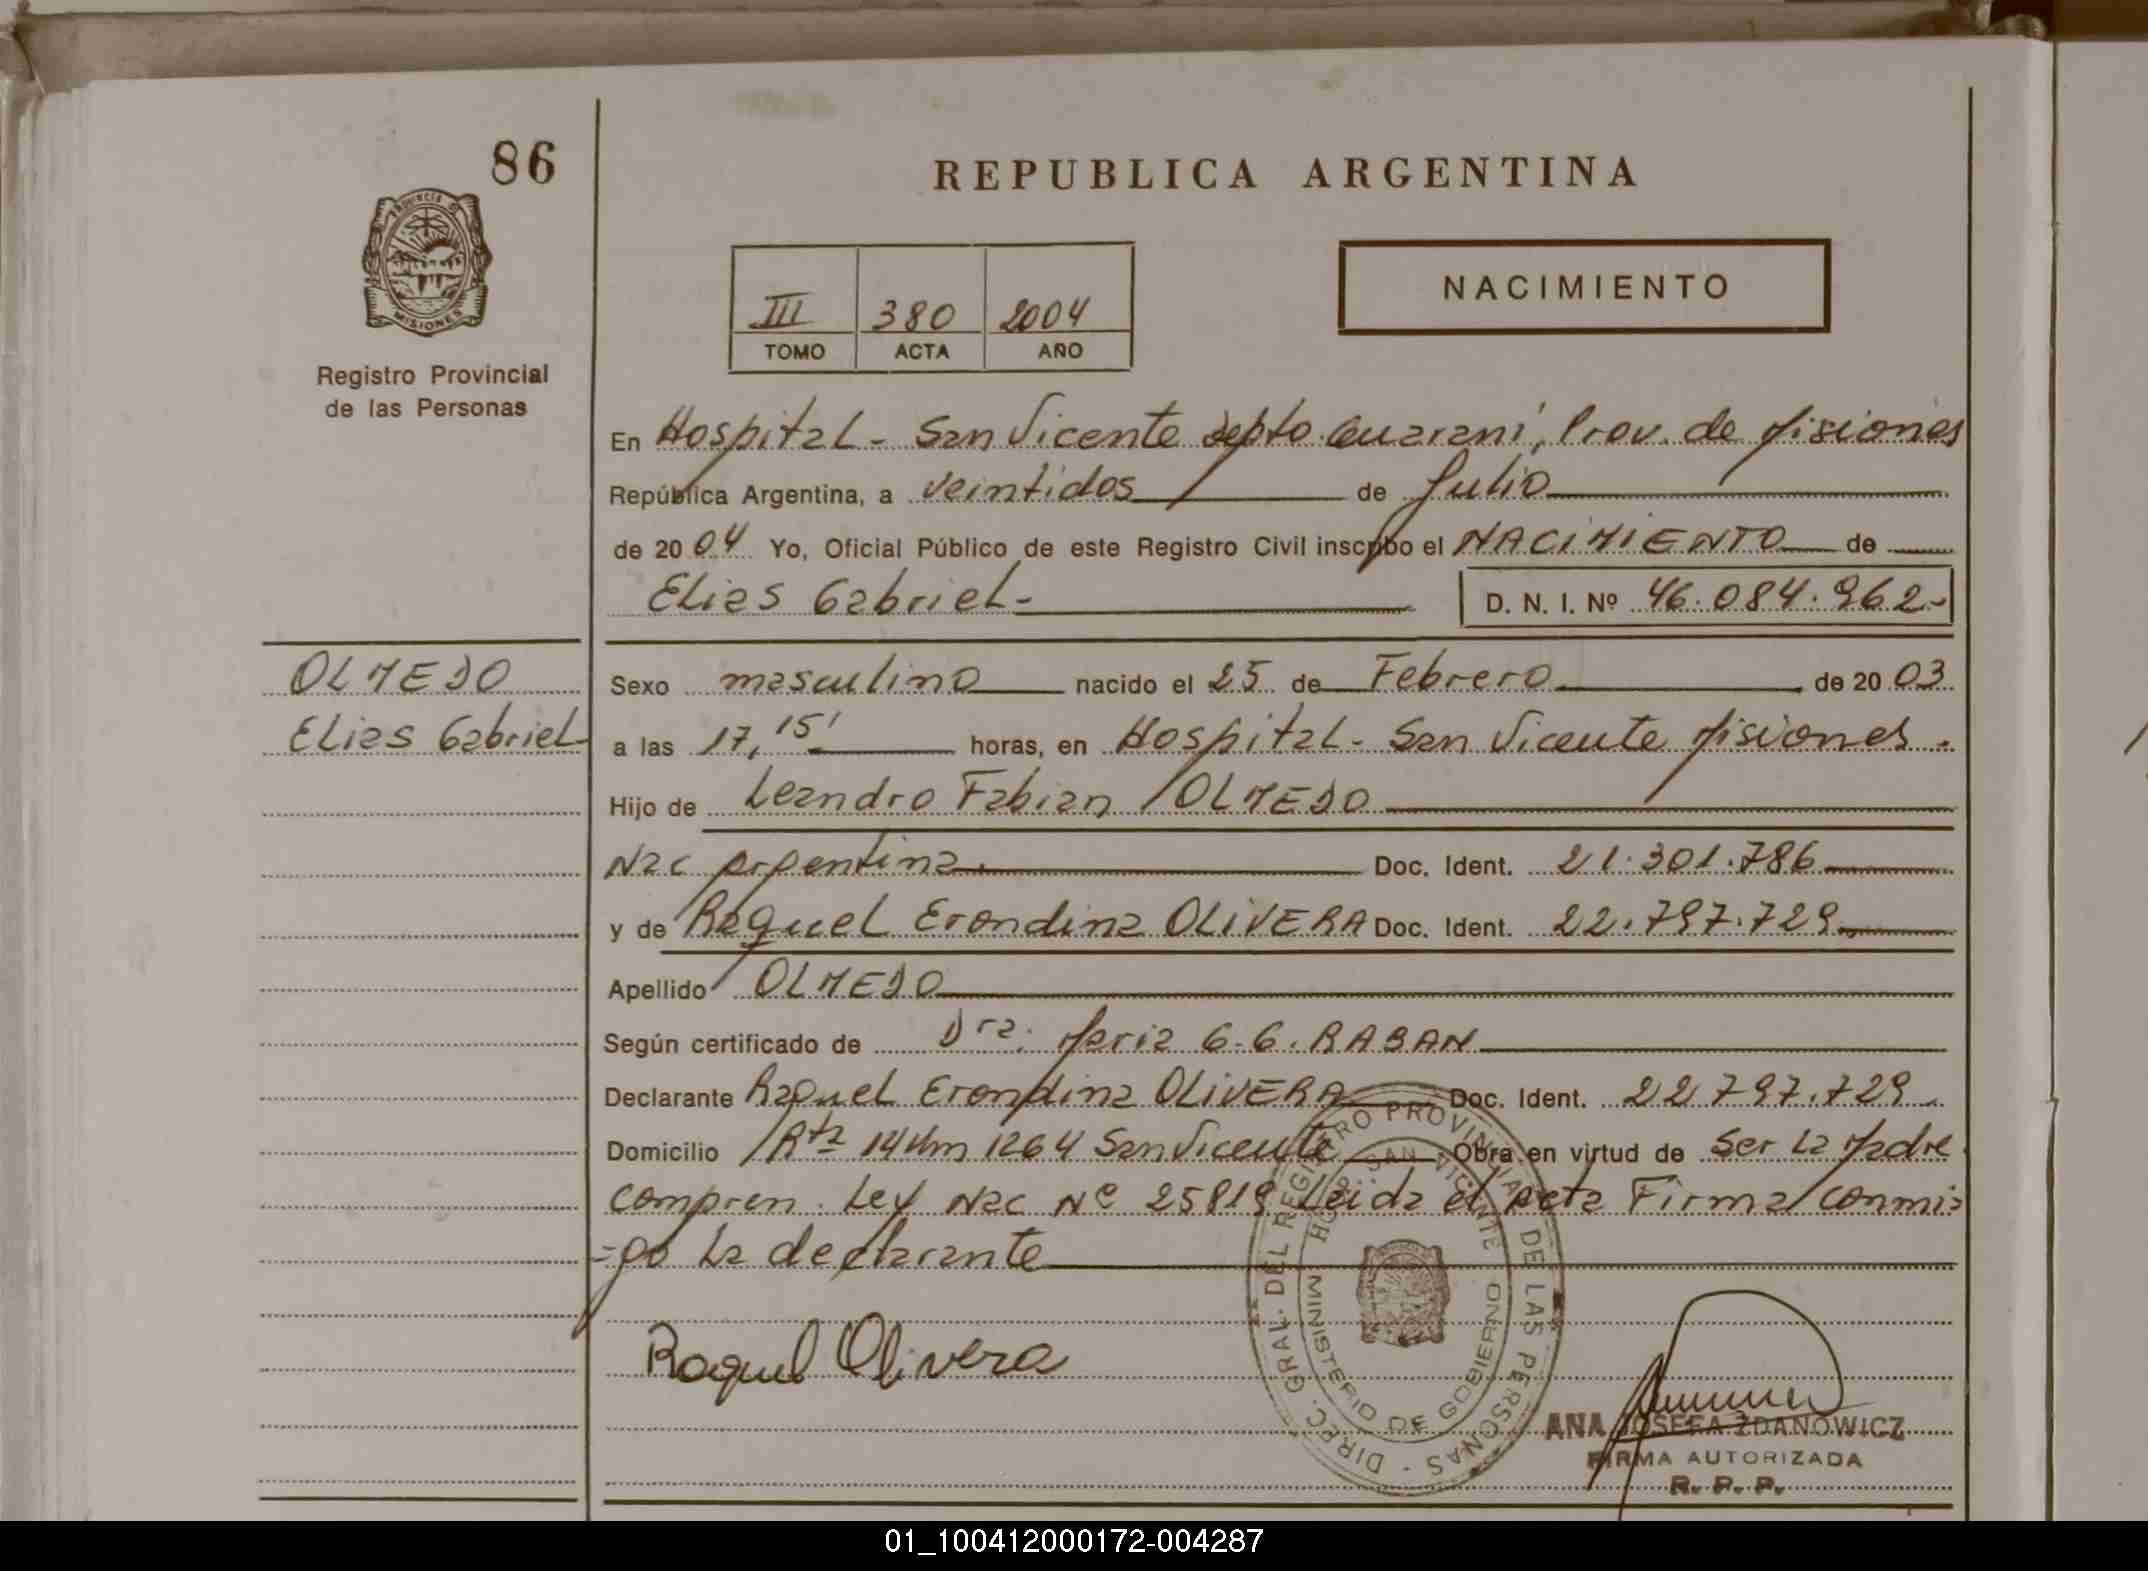 86
REPUBLICA ARGENTINA
PROVINCIA DE
MISIONES
Registro Provincial
de las Personas
III 380 2004
TOMO ACTA AÑO
NACIMIENTO
En Hospital - San Vicente depto Guaraní, Prov. de Misiones
República Argentina, a veintidos de Julio
de 2004 Yo, Oficial Público de este Registro Civil inscribo el NACIMIENTO de
Elias Gabriel - D. N. I. Nº 46.084.962-
OLMEDO
Elias Gabriel
Sexo masculino nacido el 25 de Febrero de 2003
a las 17,15' horas, en Hospital - San Vicente Misiones -
Hijo de Leandro Fabian OLMEDO
Nac Argentina. Doc. Ident. 21.301.786
y de Raquel Erondina OLIVERA Doc. Ident. 22.797.729
Apellido OLMEDO
Según certificado de Dra. Maria G. G. RABAN
Declarante Raquel Erondina OLIVERA Doc. Ident. 22797.729
Domicilio Rta 14 Km 1264 San Vicente Obra en virtud de Ser La Madre
Compren. Ley Nac Nº 25819 Leida el Acta Firma conmi=
=go La declarante
Raquel Olivera
DIREC. GRAL. DEL REGISTRO PROVINCIAL DE LAS PERSONAS
HOSP. SAN VICENTE
MINISTERIO DE GOBIERNO
ANA JOSEFA ZDANOWICZ
FIRMA AUTORIZADA
R. P. P.
01_100412000172-004287